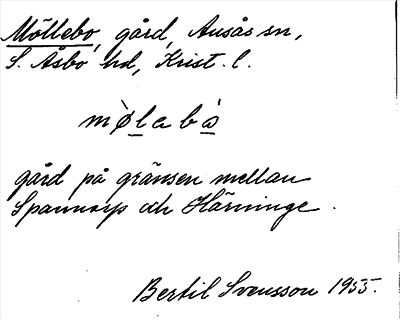 Möllebo, gård, Ausås sn,
S. Åsbo hd, Krist. l.
mø̀labò
gård på gränsen mellan
Spannarp och Härninge.
Bertil Svensson 1955.